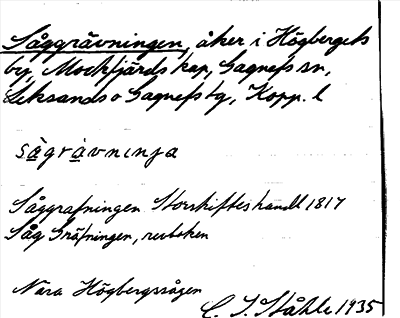 Såggrävningen, åker i Högbergets
by, Mockfjärds kap, Gagnefs sn,
Leksands o Gagnefs tg, Kopp. l
sågrävninja
Såggrafningen Storskifteshandl 1817
Såg Gräfningen, revboken
Nära Högbergssågen
C. I. Ståhle 1935